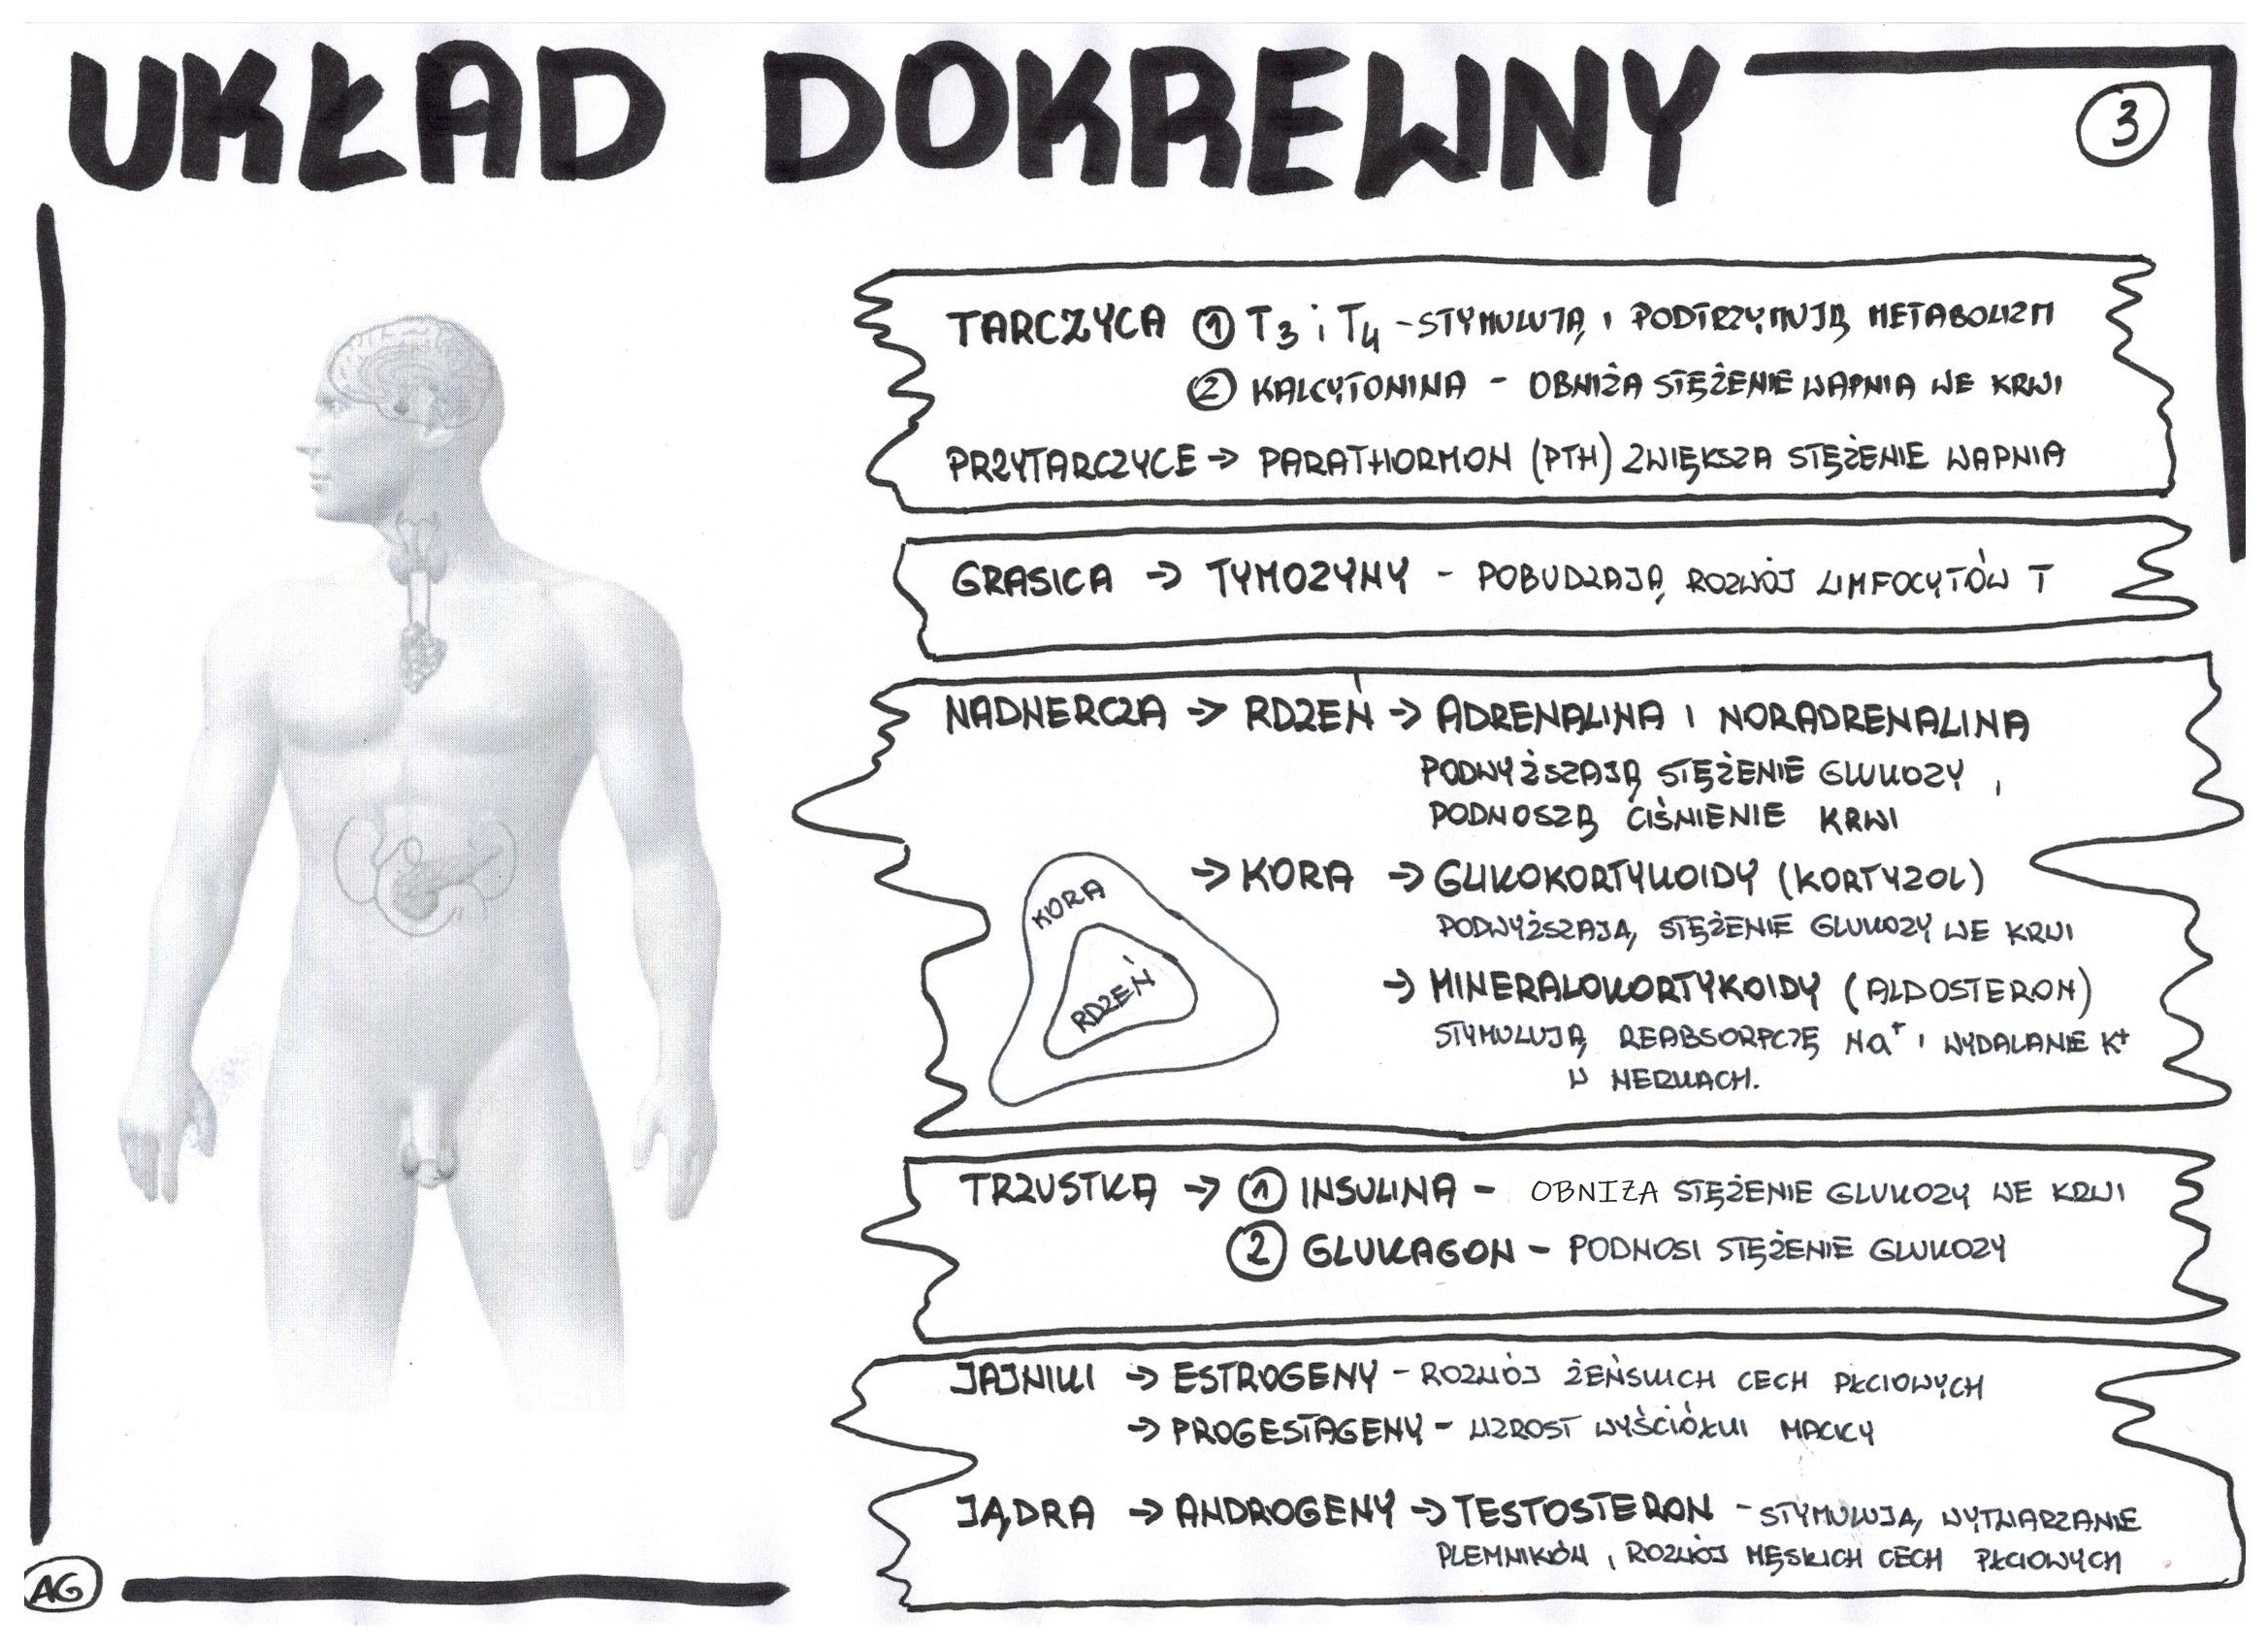 UKŁAD DOKREWNY
3
TARCZYCA ① T₃ i T₄ - STYMULUJĄ I PODTRZYMUJĄ METABOLIZM
② KALCYTONINA - OBNIŻA STĘŻENIE WAPNIA WE KRWI
PRZYTARCZYCE → PARATHORMON (PTH) ZWIĘKSZA STĘŻENIE WAPNIA
GRASICA → TYMOZYNY - POBUDZAJĄ ROZWÓJ LIMFOCYTÓW T
NADNERCZA → RDZEŃ → ADRENALINA I NORADRENALINA
PODWYŻSZAJĄ STĘŻENIE GLUKOZY,
PODNOSZĄ CIŚNIENIE KRWI
→ KORA → GLIKOKORTYKOIDY (KORTYZOL)
PODWYŻSZAJĄ STĘŻENIE GLUKOZY WE KRWI
→ MINERALOKORTYKOIDY (ALDOSTERON)
STYMULUJĄ REABSORPCJĘ Na⁺ I WYDALANIE K⁺
W NERKACH.
KORA
RDZEŃ
TRZUSTKA → ① INSULINA - OBNIŻA STĘŻENIE GLUKOZY WE KRWI
② GLUKAGON - PODNOSI STĘŻENIE GLUKOZY
JAJNIKI → ESTROGENY - ROZWÓJ ŻEŃSKICH CECH PŁCIOWYCH
→ PROGESTAGENY - WZROST WYŚCIÓŁKI MACICY
JĄDRA → ANDROGENY → TESTOSTERON - STYMULUJĄ WYTWARZANIE
PLEMNIKÓW, ROZWÓJ MĘSKICH CECH PŁCIOWYCH
AG